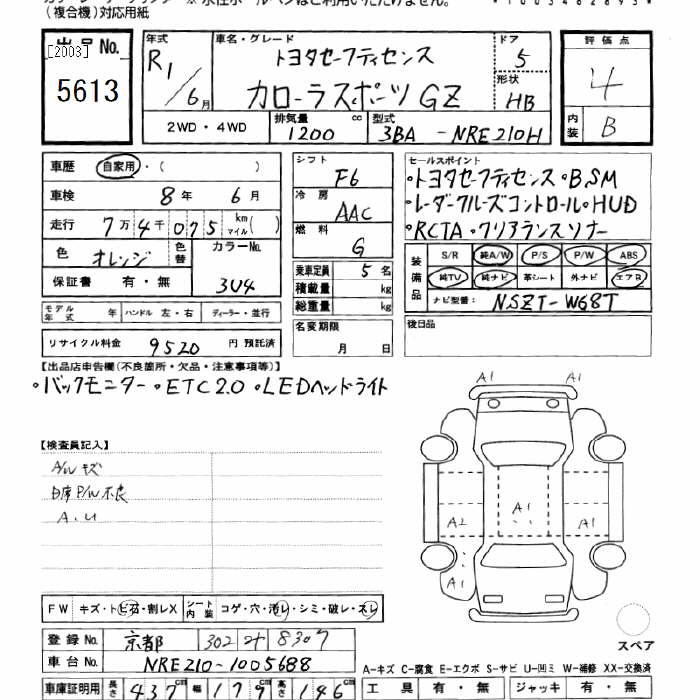 (複合機)対応用紙
出品No.
[2003]
5613
年式 R1/6月
車名・グレード トヨタセーフティセンス
カローラスポーツGZ
ドア 5
形状 HB
評価点 4
内装 B
2WD・4WD
排気量 1200 cc
型式 3BA - NRE210H
車歴 自家用・( )
車検 8年 6月
走行 7万4千075 km マイル( )
色 オレンジ 色替 カラーNo. 3U4
保証書 有・無
モデル年式 年 ハンドル 左・右 ディーラー・並行
リサイクル料金 9520 円 預託済
シフト F6
冷房 AAC
燃料 G
乗車定員 5名
積載量 kg
総重量 kg
名変期限 月 日
セールスポイント
・トヨタセーフティセンス・BSM
・レーダークルーズコントロール・HUD
・RCTA・クリアランスソナー
装備品 S/R 純A/W P/S P/W ABS
純TV 純ナビ 革シート 外ナビ エアB
ナビ型番: NSZT-W68T
後日品
【出品店申告欄(不良箇所・欠品・注意事項等)】
・バックモニター・ETC2.0・LEDヘッドライト
【検査員記入】
A/Wキズ
自席P/W不良
A.U
A1 A1
A2 A1 A1
A1
FW キズ・トビ石・割レX シート内装 コゲ・穴・汚レ・シミ・破レ・スレ
登録No. 京都 302 サ 8307
車台No. NRE210-1005688
スペア
A-キズ C-腐食 E-エクボ S-サビ U-凹ミ W-補修 XX-交換済
車庫証明用 長さ 437cm 幅 179cm 高さ 146cm
工具 有・無 ジャッキ 有・無